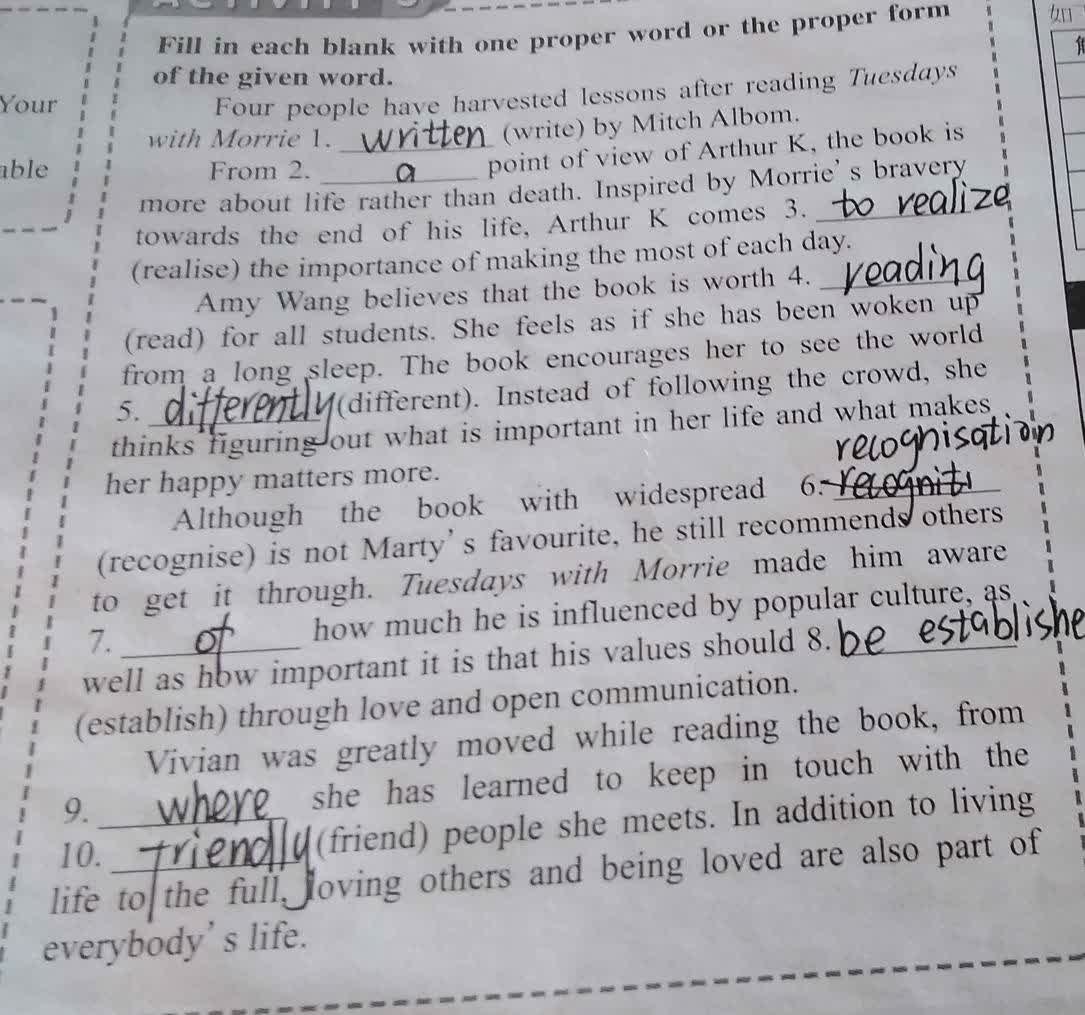 Fill in each blank with one proper word or the proper form
of the given word.
Four people have harvested lessons after reading Tuesdays
with Morrie 1. written (write) by Mitch Albom.
From 2. a point of view of Arthur K, the book is
more about life rather than death. Inspired by Morrie's bravery
towards the end of his life, Arthur K comes 3. to realize
(realise) the importance of making the most of each day.
Amy Wang believes that the book is worth 4. reading
(read) for all students. She feels as if she has been woken up
from a long sleep. The book encourages her to see the world
5. differently (different). Instead of following the crowd, she
thinks figuring out what is important in her life and what makes
her happy matters more.
recognisation
Although the book with widespread 6. recogniti
(recognise) is not Marty's favourite, he still recommends others
to get it through. Tuesdays with Morrie made him aware
7. of how much he is influenced by popular culture, as
well as how important it is that his values should 8. be establishe
(establish) through love and open communication.
Vivian was greatly moved while reading the book, from
9. where she has learned to keep in touch with the
10. friendly (friend) people she meets. In addition to living
life to the full, loving others and being loved are also part of
everybody's life.
Your
able